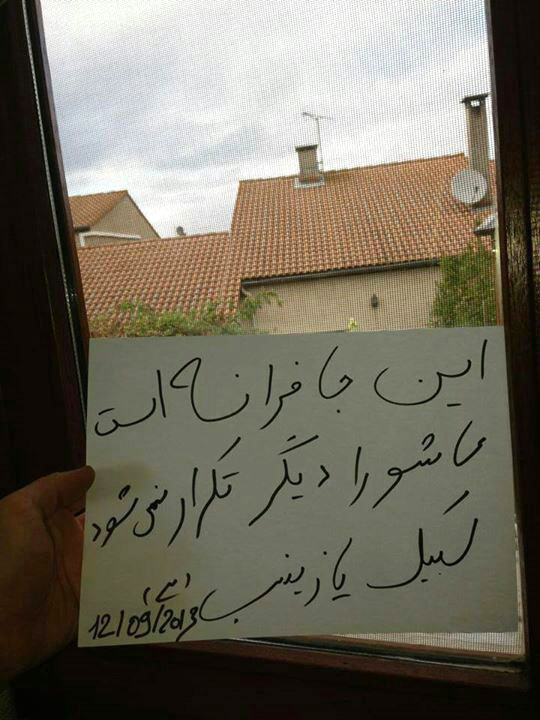 این جا فرانسه است
عاشورا دیگر تکرار نمی شود
لبیک یا زینب (س)
12/09/2013